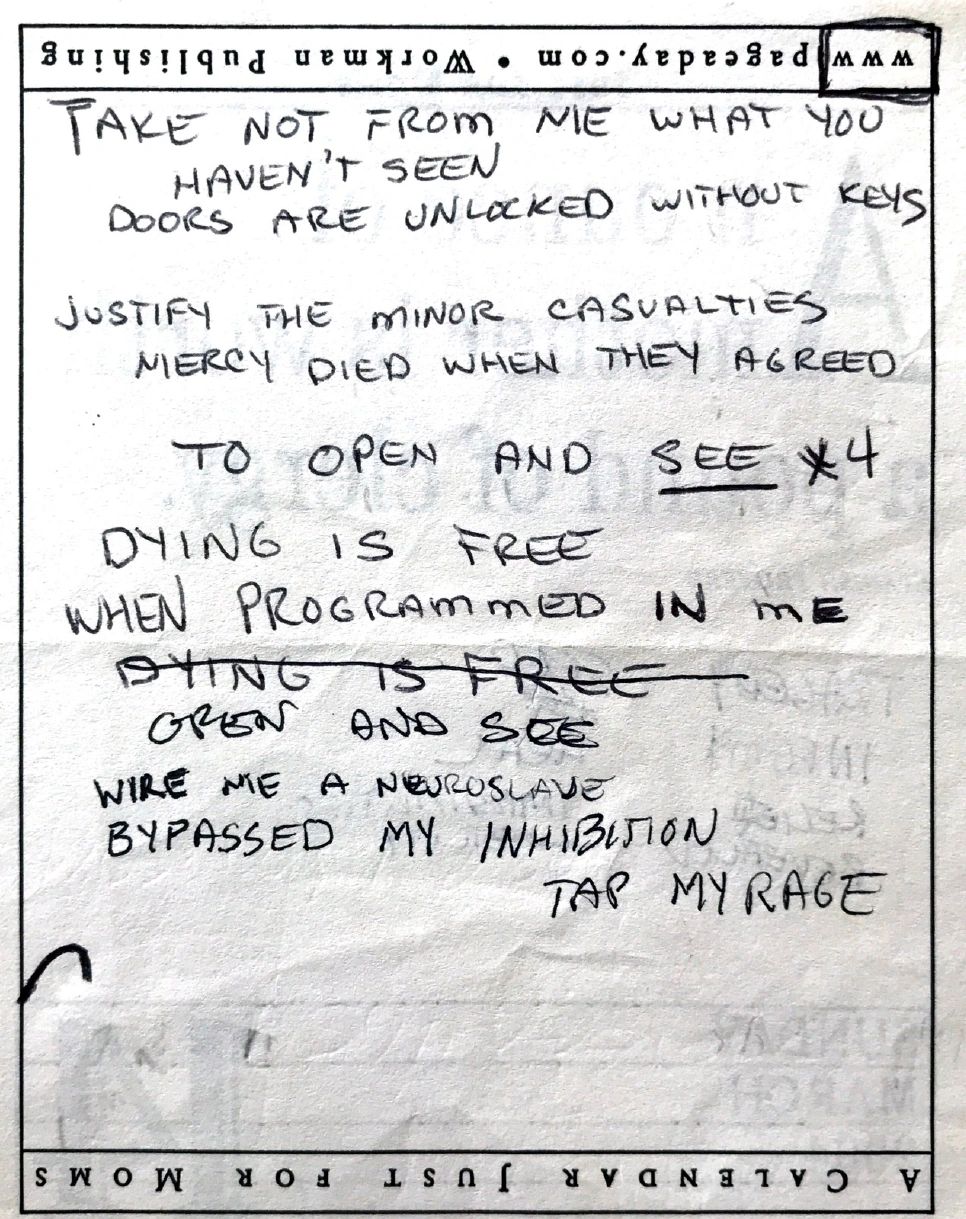 www.pageaday.com • Workman Publishing
TAKE NOT FROM ME WHAT YOU
HAVEN'T SEEN
DOORS ARE UNLOCKED WITHOUT KEYS
JUSTIFY THE MINOR CASUALTIES
MERCY DIED WHEN THEY AGREED
TO OPEN AND SEE *4
DYING IS FREE
WHEN PROGRAMMED IN ME
DYING IS FREE
OPEN AND SEE
WIRE ME A NEUROSLAVE
BYPASSED MY INHIBITION
TAP MY RAGE
SUNDAY
MARCH
A CALENDAR JUST FOR MOMS